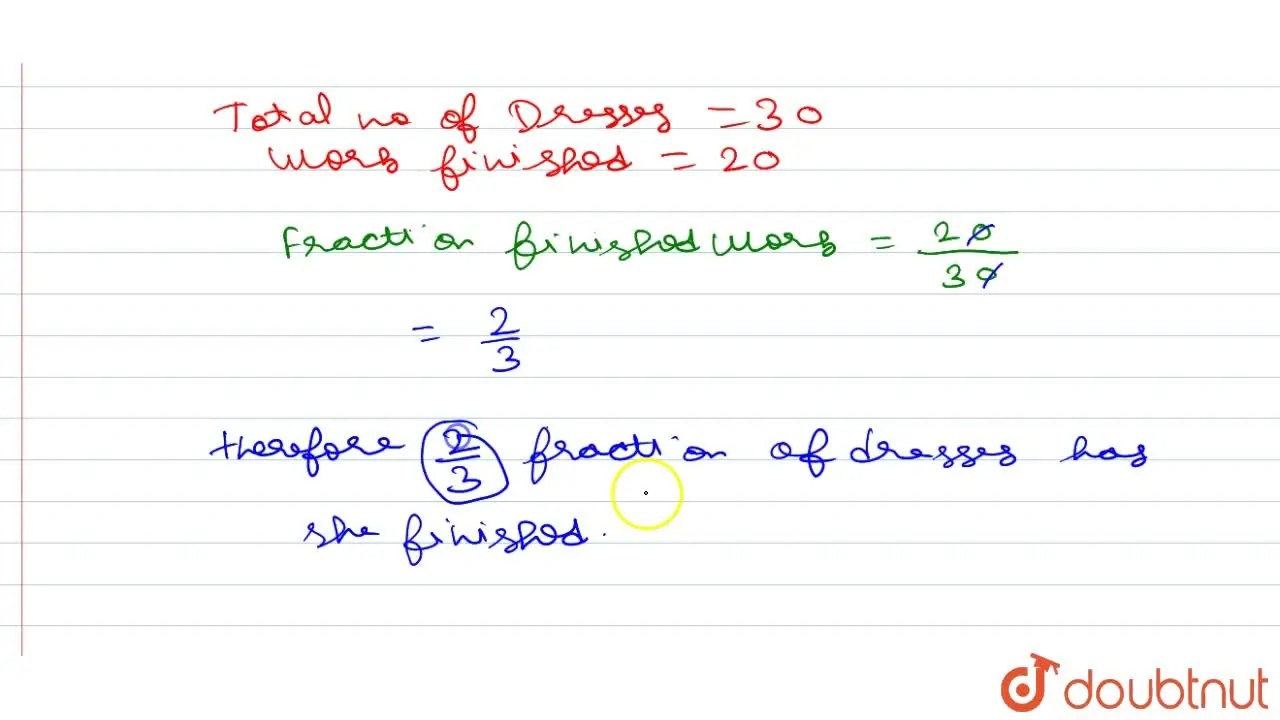 Total no of Dresses = 30
Work finished = 20
Fraction finished work = 20/30
= 2/3
therefore 2/3 fraction of dresses has
she finished.
doubtnut